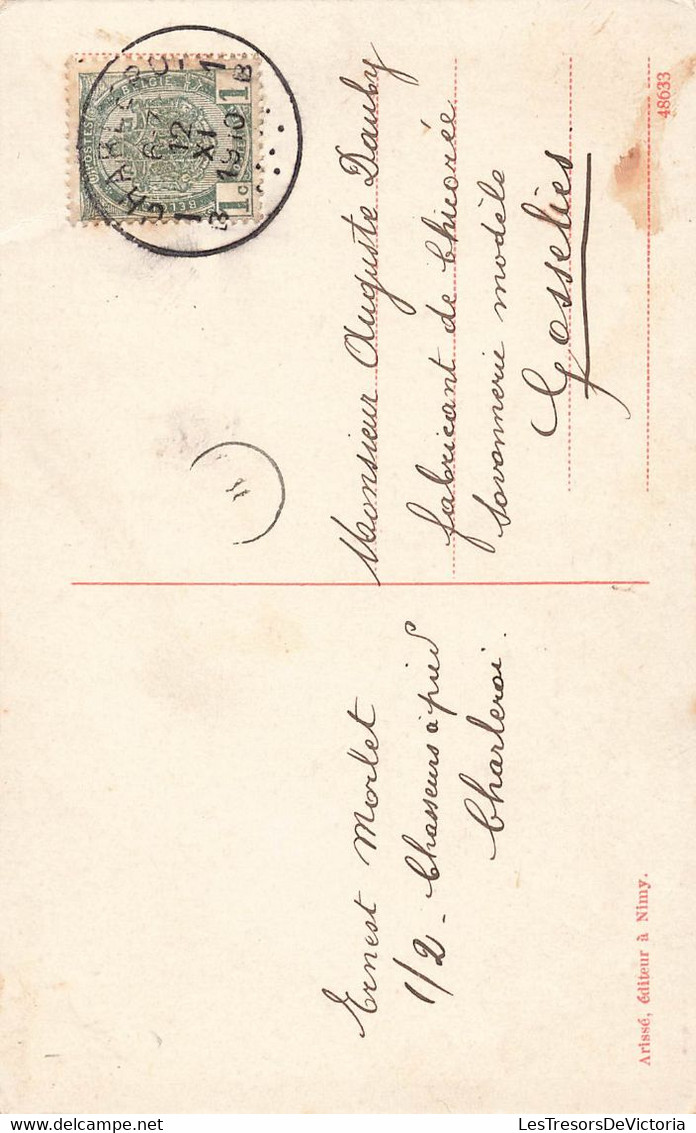 Ernest Morlet
1/2 - Chasseurs à pied
Charleroi.
Arissé, éditeur à Nimy.
Monsieur Auguste Dauby
fabricant de Chicorée
Savonnerie modèle
Gosselies
48633
POSTES
BELGIE
1c
1c
CHARLEROI
1
12
XI
1910
B
1
B
LesTresorsDeVictoria
delcampe.net